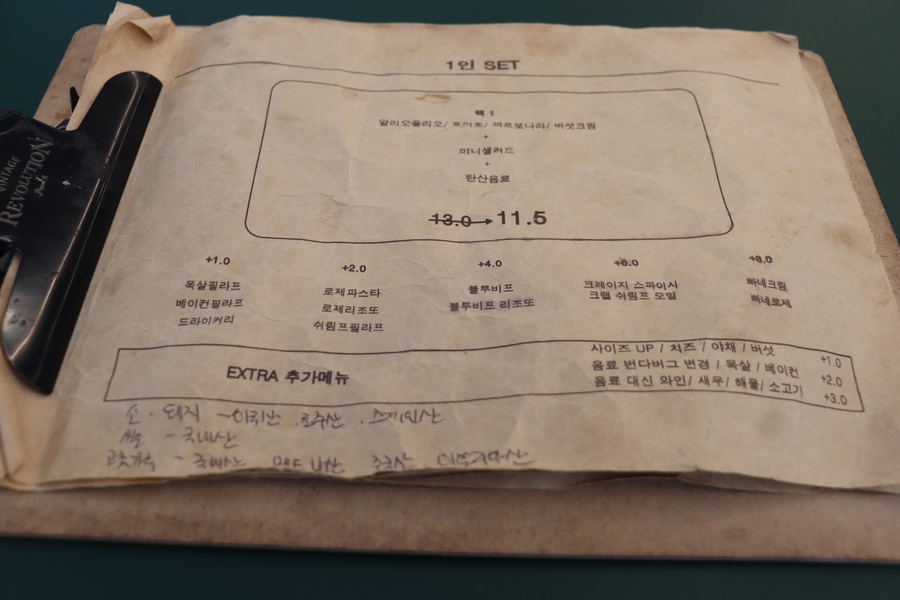 VINTAGE
REVOLUTION
1인 SET
택 1
알리오올리오/ 토마토/ 까르보나라/ 버섯크림
+
미니샐러드
+
탄산음료
13.0 → 11.5
+1.0
목살필라프
베이컨필라프
드라이커리
+2.0
로제파스타
로제리조또
쉬림프필라프
+4.0
블루비프
블루비프 리조또
+6.0
크레이지 스파이시
크랩 쉬림프 오일
+8.0
빠네크림
빠네로제
EXTRA 추가메뉴
사이즈 UP / 치즈 / 야채 / 버섯 +1.0
음료 번다버그 변경 / 목살 / 베이컨 +2.0
음료 대신 와인/ 새우/ 해물/ 소고기 +3.0
소 . 돼지 - 호주산 . 스페인산
쌀 - 국내산